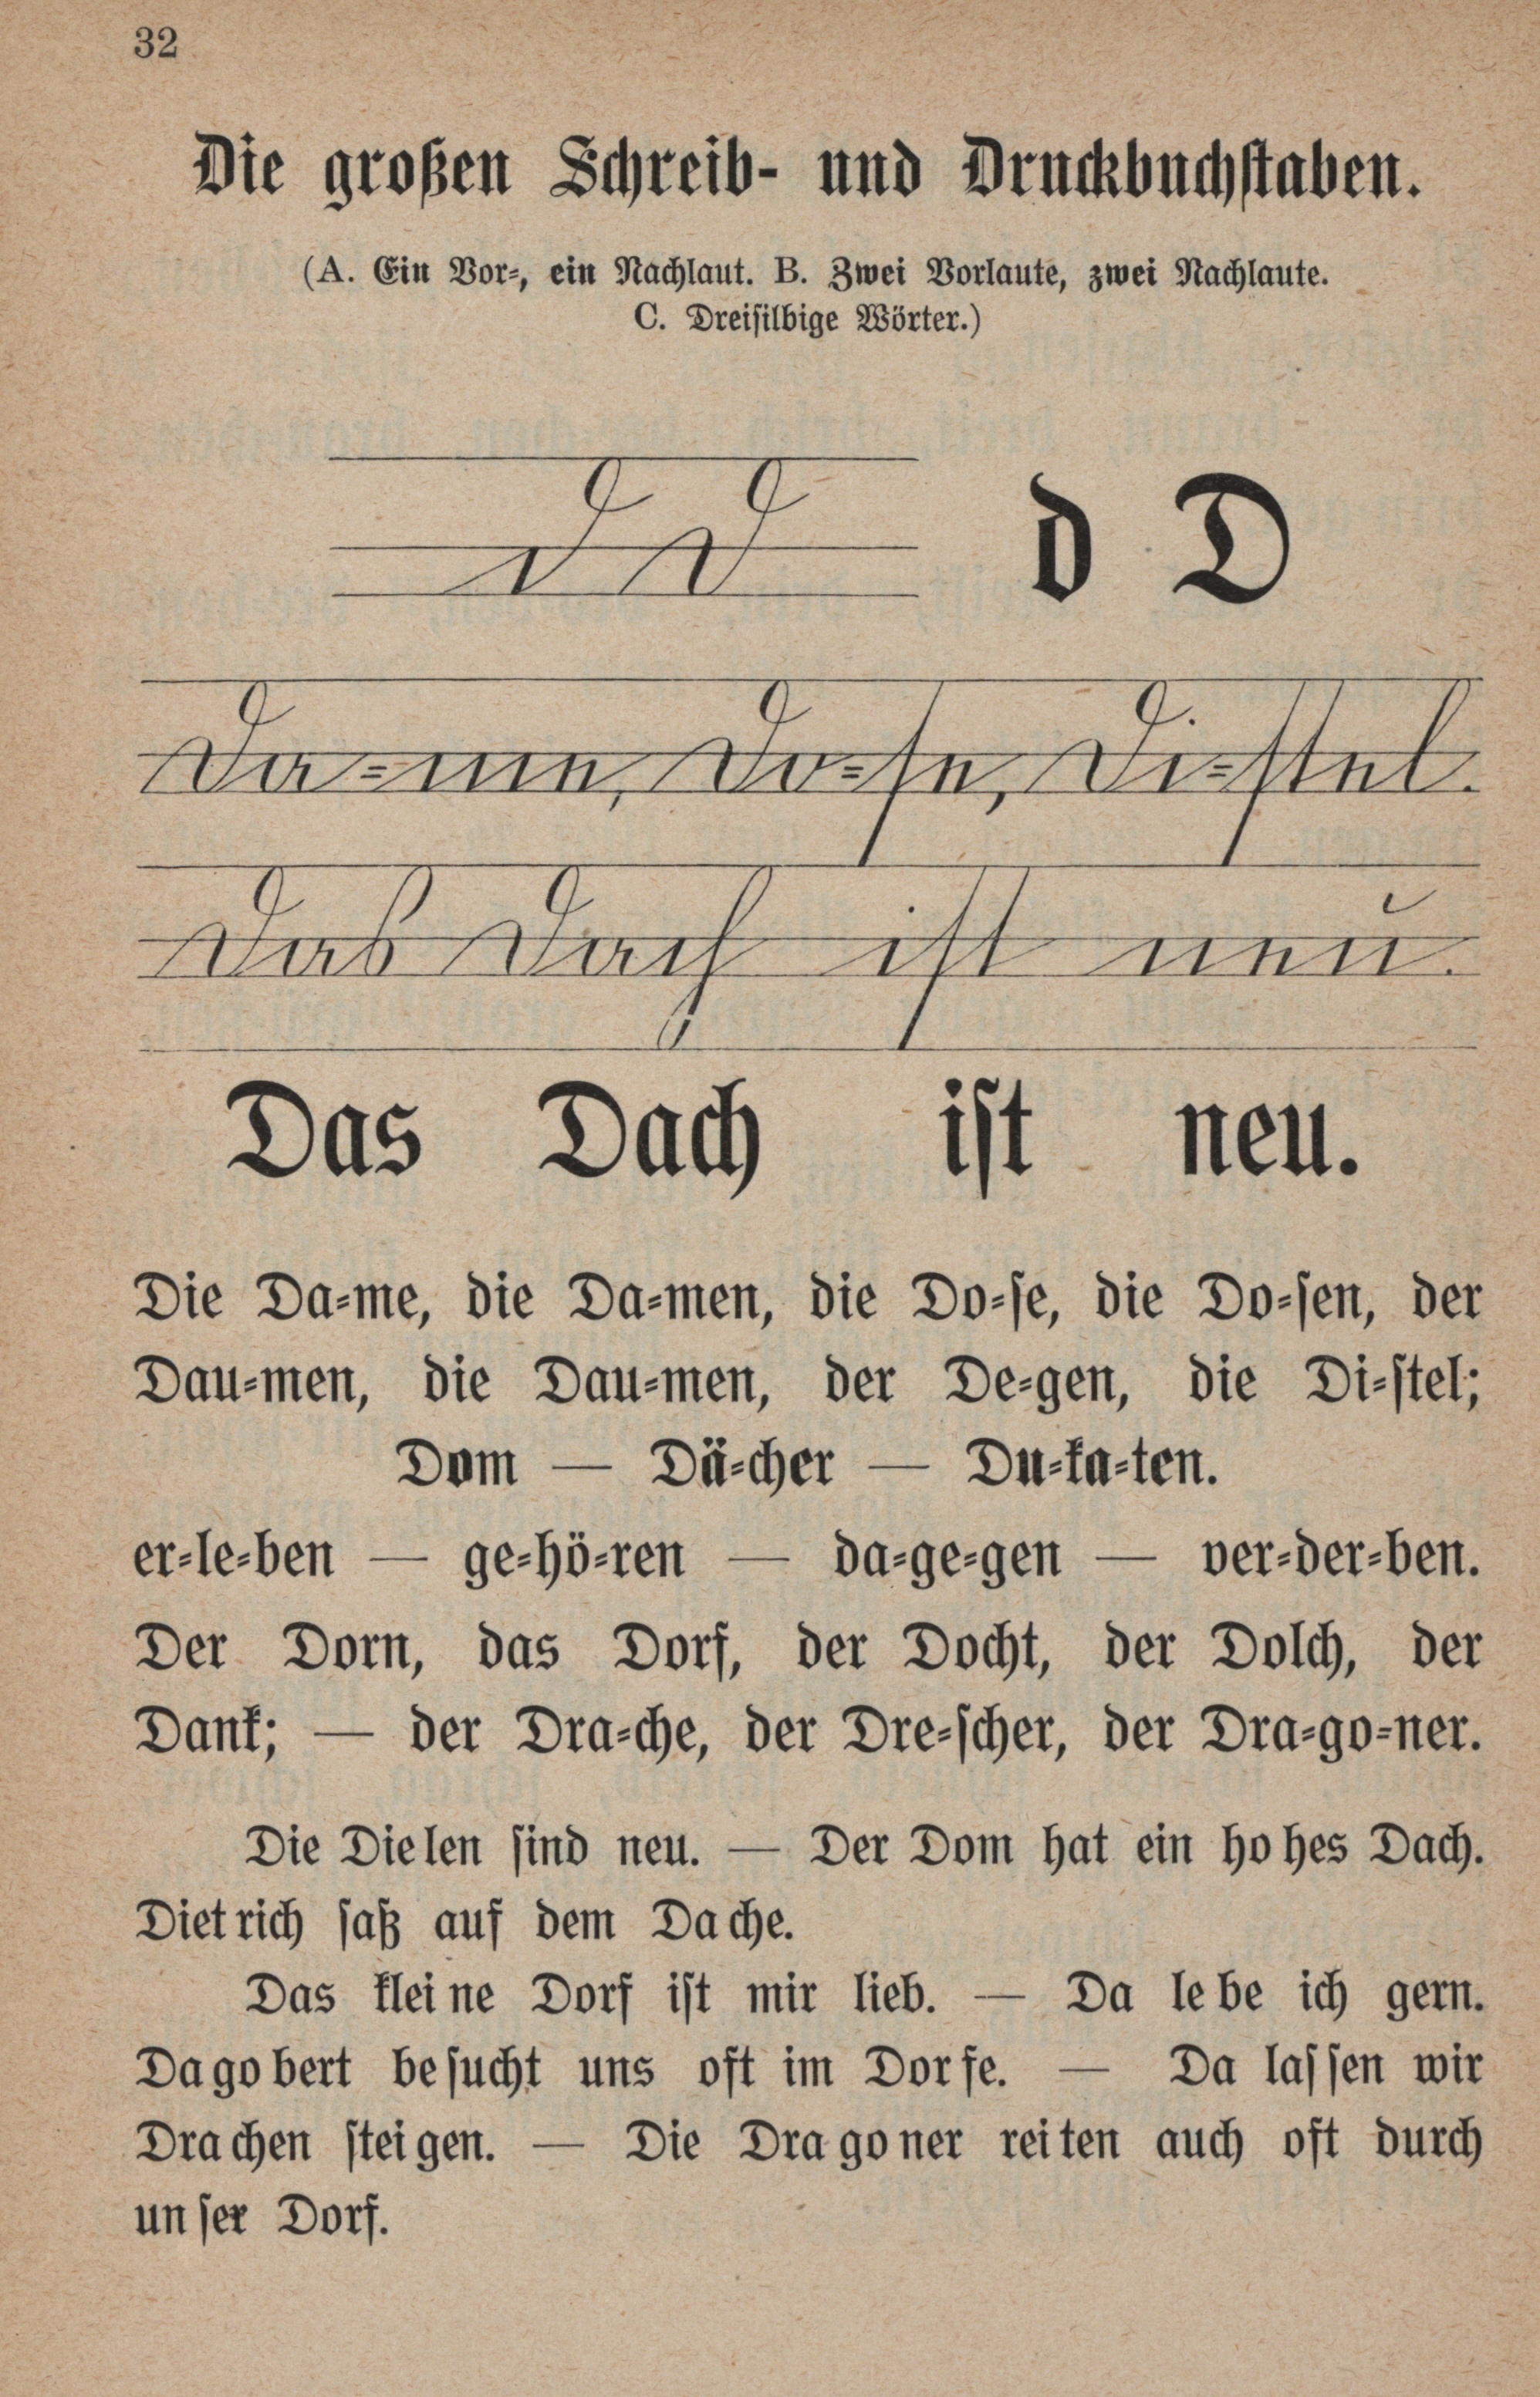 32
Die großen Schreib- und Druckbuchstaben.
(A. Ein Vor-, ein Nachlaut. B. Zwei Vorlaute, zwei Nachlaute.
C. Dreisilbige Wörter.)
d D d D
Da-me, Do-se, Di-stel.
Das Dach ist neu.
Das Dach ist neu.
Die Da-me, die Da-men, die Do-se, die Do-sen, der
Dau-men, die Dau-men, der De-gen, die Di-stel;
Dom — Dä-cher — Du-ka-ten.
er-le-ben — ge-hö-ren — da-ge-gen — ver-der-ben.
Der Dorn, das Dorf, der Docht, der Dolch, der
Dank; — der Dra-che, der Dre-scher, der Dra-go-ner.
Die Die len sind neu. — Der Dom hat ein ho hes Dach.
Diet rich saß auf dem Da che.
Das klei ne Dorf ist mir lieb. — Da le be ich gern.
Da go bert be sucht uns oft im Dor fe. — Da las sen wir
Dra chen stei gen. — Die Dra go ner rei ten auch oft durch
un ser Dorf.